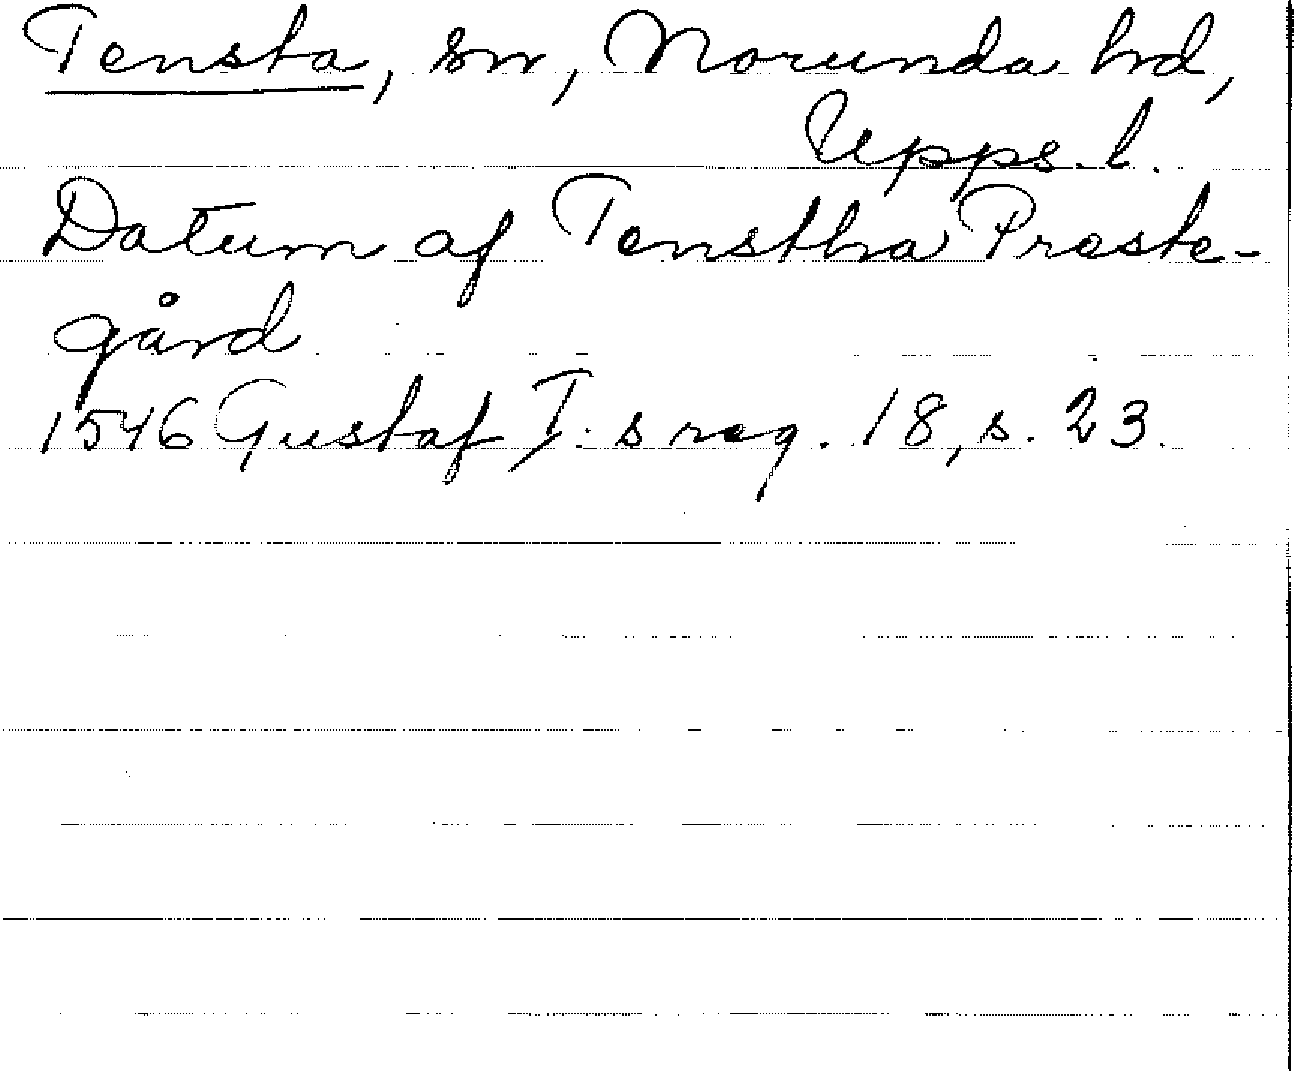 Tensta, sn, Norunda hd,
Upps. l.
Datum af Tenstha Preste-
gård
1546 Gustaf I:s reg. 18, s. 23.